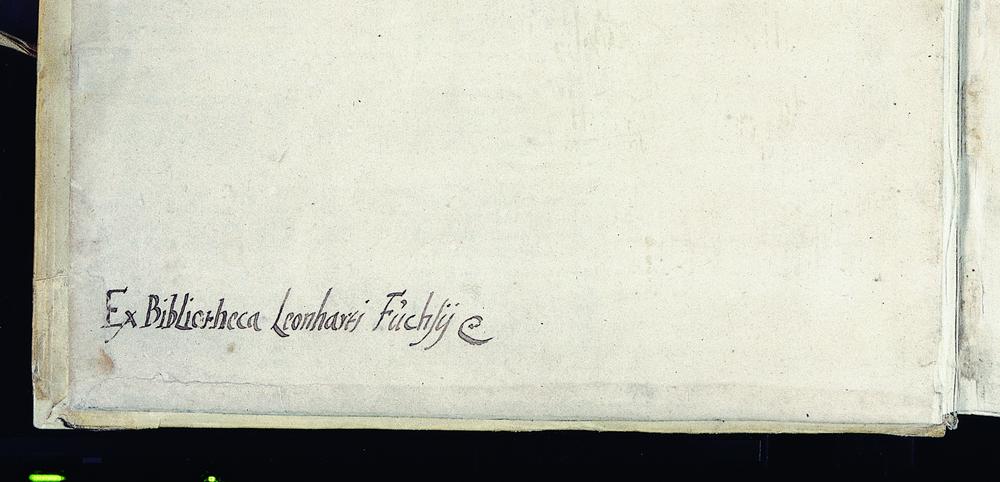 Ex Bibliotheca Leonharti Fuchsij